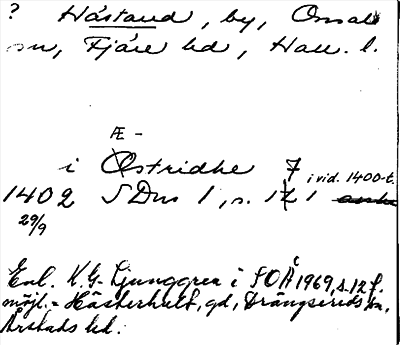 ? Håstaud, by, Onsala
sn, Fjäre hd, Hall. l.
Æ -
i Østridhe 7 i vid. 1400-t.
1402 SDns 1, s. 171
29/9
Enl. K.G. Ljunggren i SOÅ 1969, s. 12 f.
möjl. = Hästerhult, gd, Drängsereds sn,
Årstads hd.